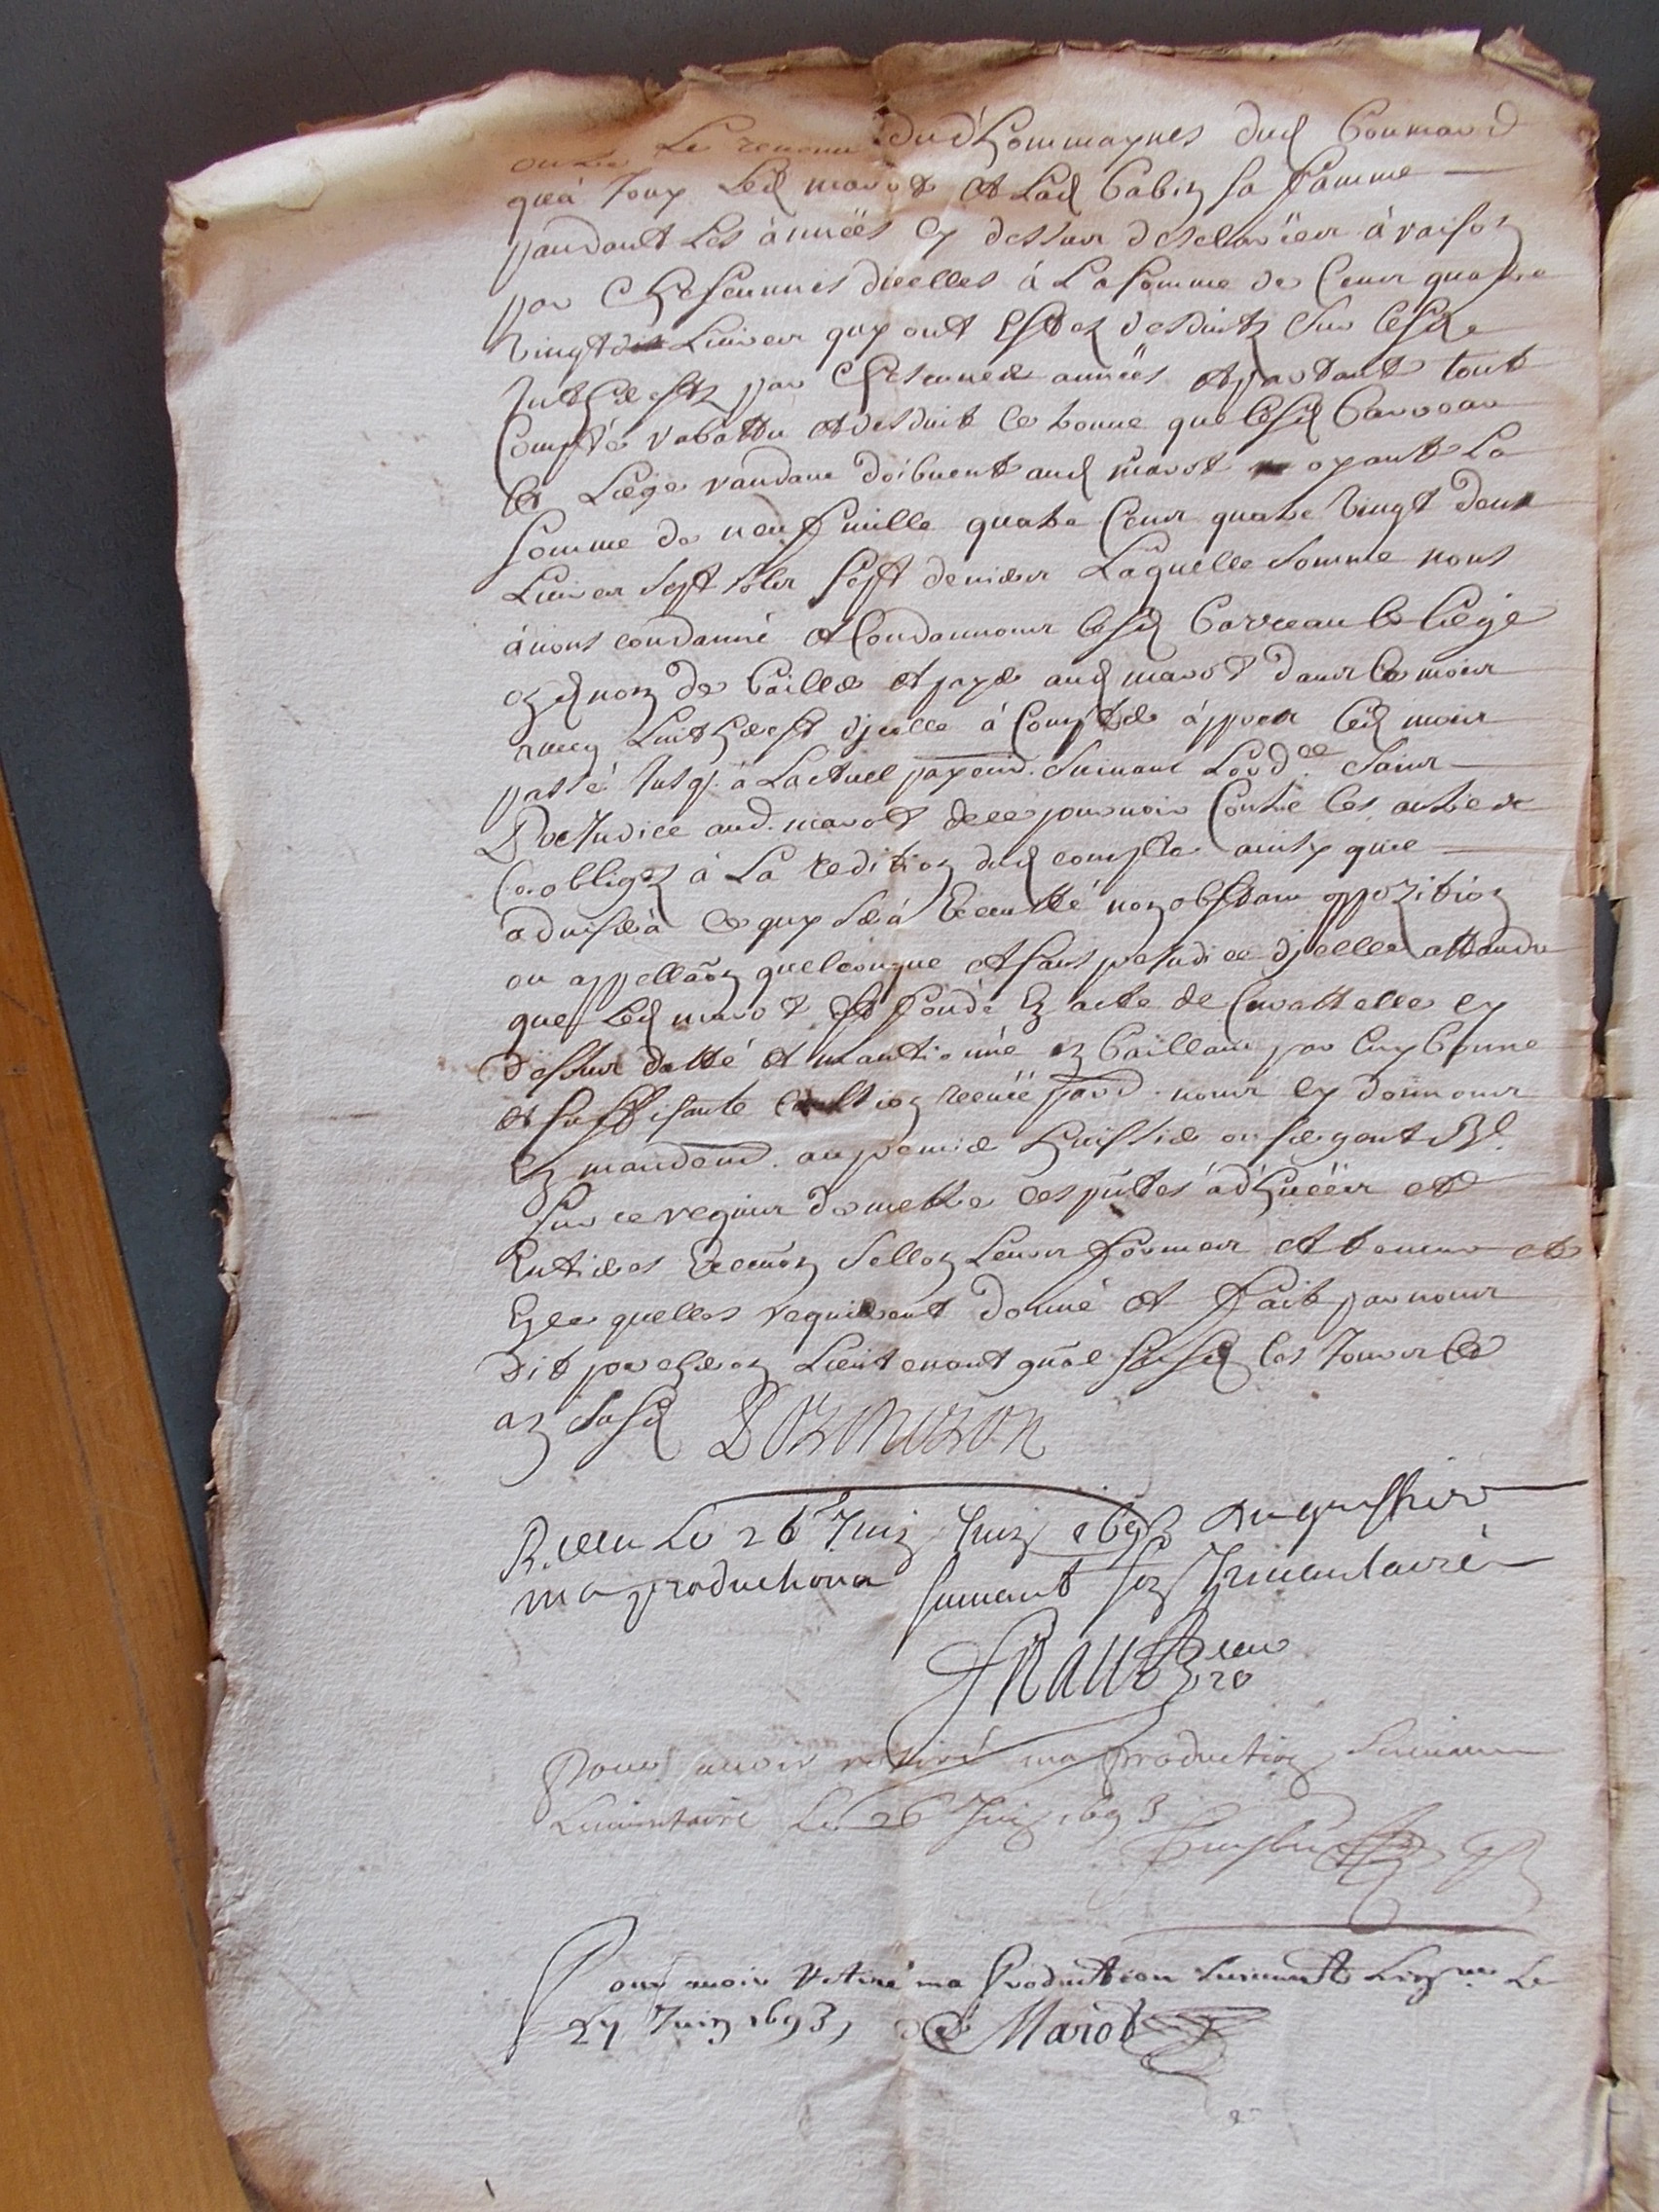 outre Le revenu dud hommaynes dud Coumard
qu'à Jouy Led marot et Lad Babin sa famme
pandant Les années cy dessus desclarées à raison
par chescunnes dicelles à La somme de Cens quatre
vingt dix Livres quy ont estez desduits sur lesd
Inthérestz par chescunne années et partant tout
Compté rabattu et desduit se trouve que lesd Carreau
et Liége randans doibvent aud marot oyant La
somme de neuf mille quatre Cens quatre vingt deux
Livres sept sols sept deniers Laquelle somme nous
avons condanné et Condannons lesd Carreau et Liége
esd nom de bailler et payer aud marot dans le mois
avecq Linthérest d'jcelle à Compter après led mois
passé Jusq. à Lactuel payem. suivant Lord.ce sans
Préjudice aud. marot de se pourvoir Contre les autres
Coobligez à La redition dud compte ainsy qu'il
advisera ce quy sera Exécutté nonobstant oppozition
ou appellaõn quelconque et sans préjudice d'jcelle attandu
que Led marot est fondé En acte de Curattelle cy
dessus datté et mantionné en baillant par luy bonne
et suffisante caultion receüe pard. nous cy donnons
En mandem. au premier huissier ou sergent Rl.
sur ce requis de mettre ces pñtes à dhuëe et
Entière Exécuõn sellon Leurs formes et teneur et
Ezce quelles requièrent donné et fait par nous
dit Lieutenant gñal susd les Jours et
an susd

Receu Le 26 Juin 1693 du greffier
ma production suivant son Jnventaire

Pour avoir retiré ma production suivant
Linventaire Le 26 Juin 1693

Pour avoir Retiré ma Production suivant Linv.re Le
27 Juin 1693, Marot